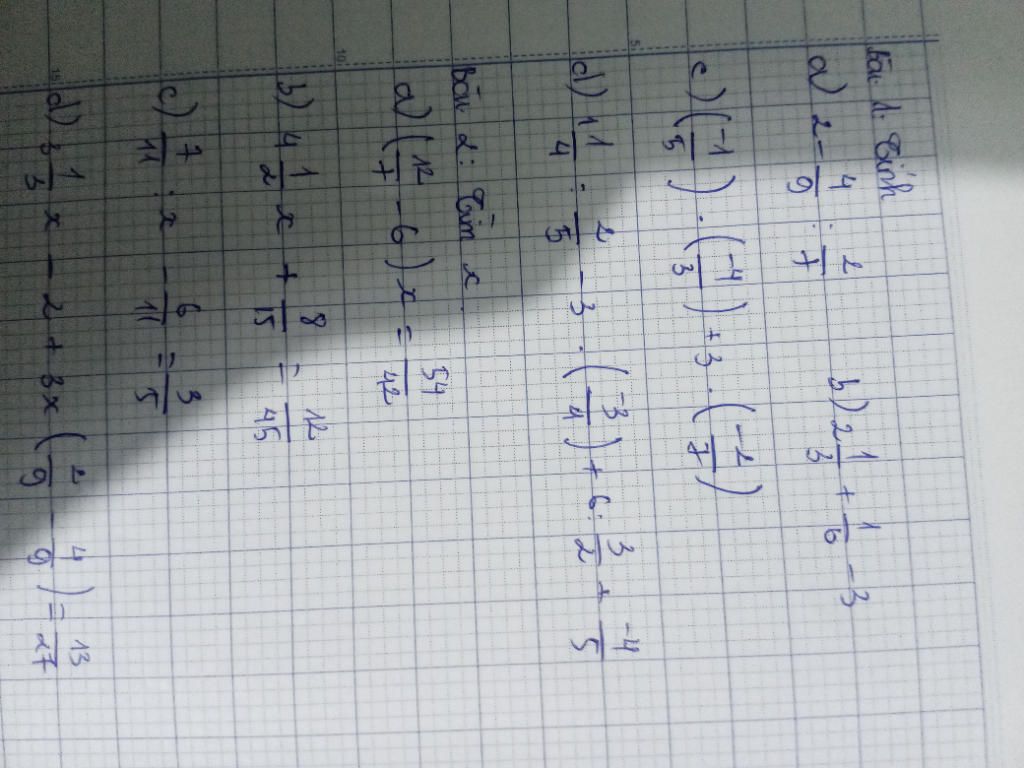 Bài 1: Tính
a) 2 - 4/9 : 2/7 b) 2 1/3 + 1/6 - 3
c) (-1/5) . (-4/3) + 3 . (-2/7)
d) 1 1/4 : 2/5 - 3 . (-3/4) + 6 : 3/2 + -4/5
Bài 2: Tìm x
a) (12/7 - 6) x = 54/42
b) 4 1/2 x + 8/15 = 12/45
c) 7/11 : x - 6/11 = 3/5
d) 3 1/3 x - 2 + 3x (2/9 - 4/9) = 13/27